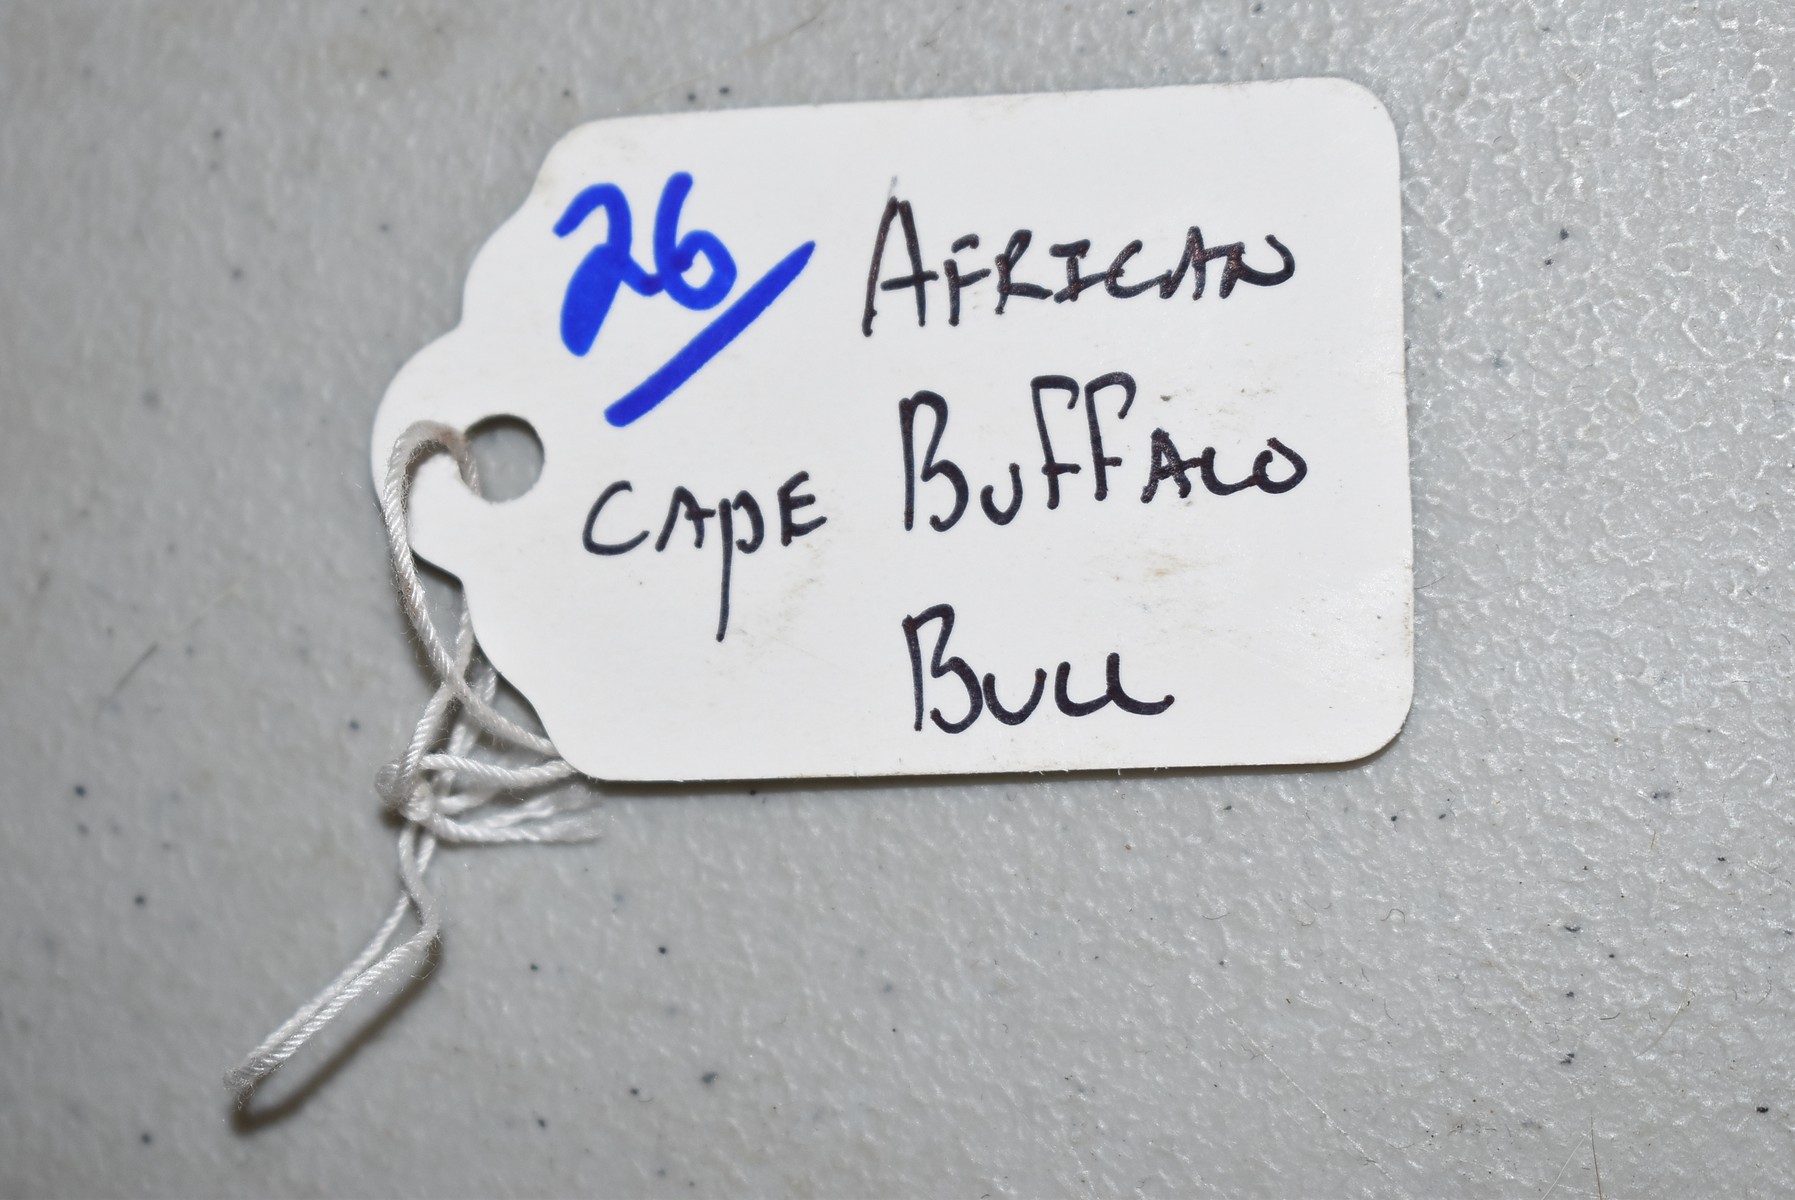 26/ AFRICAN
CAPE BUFFALO
BULL